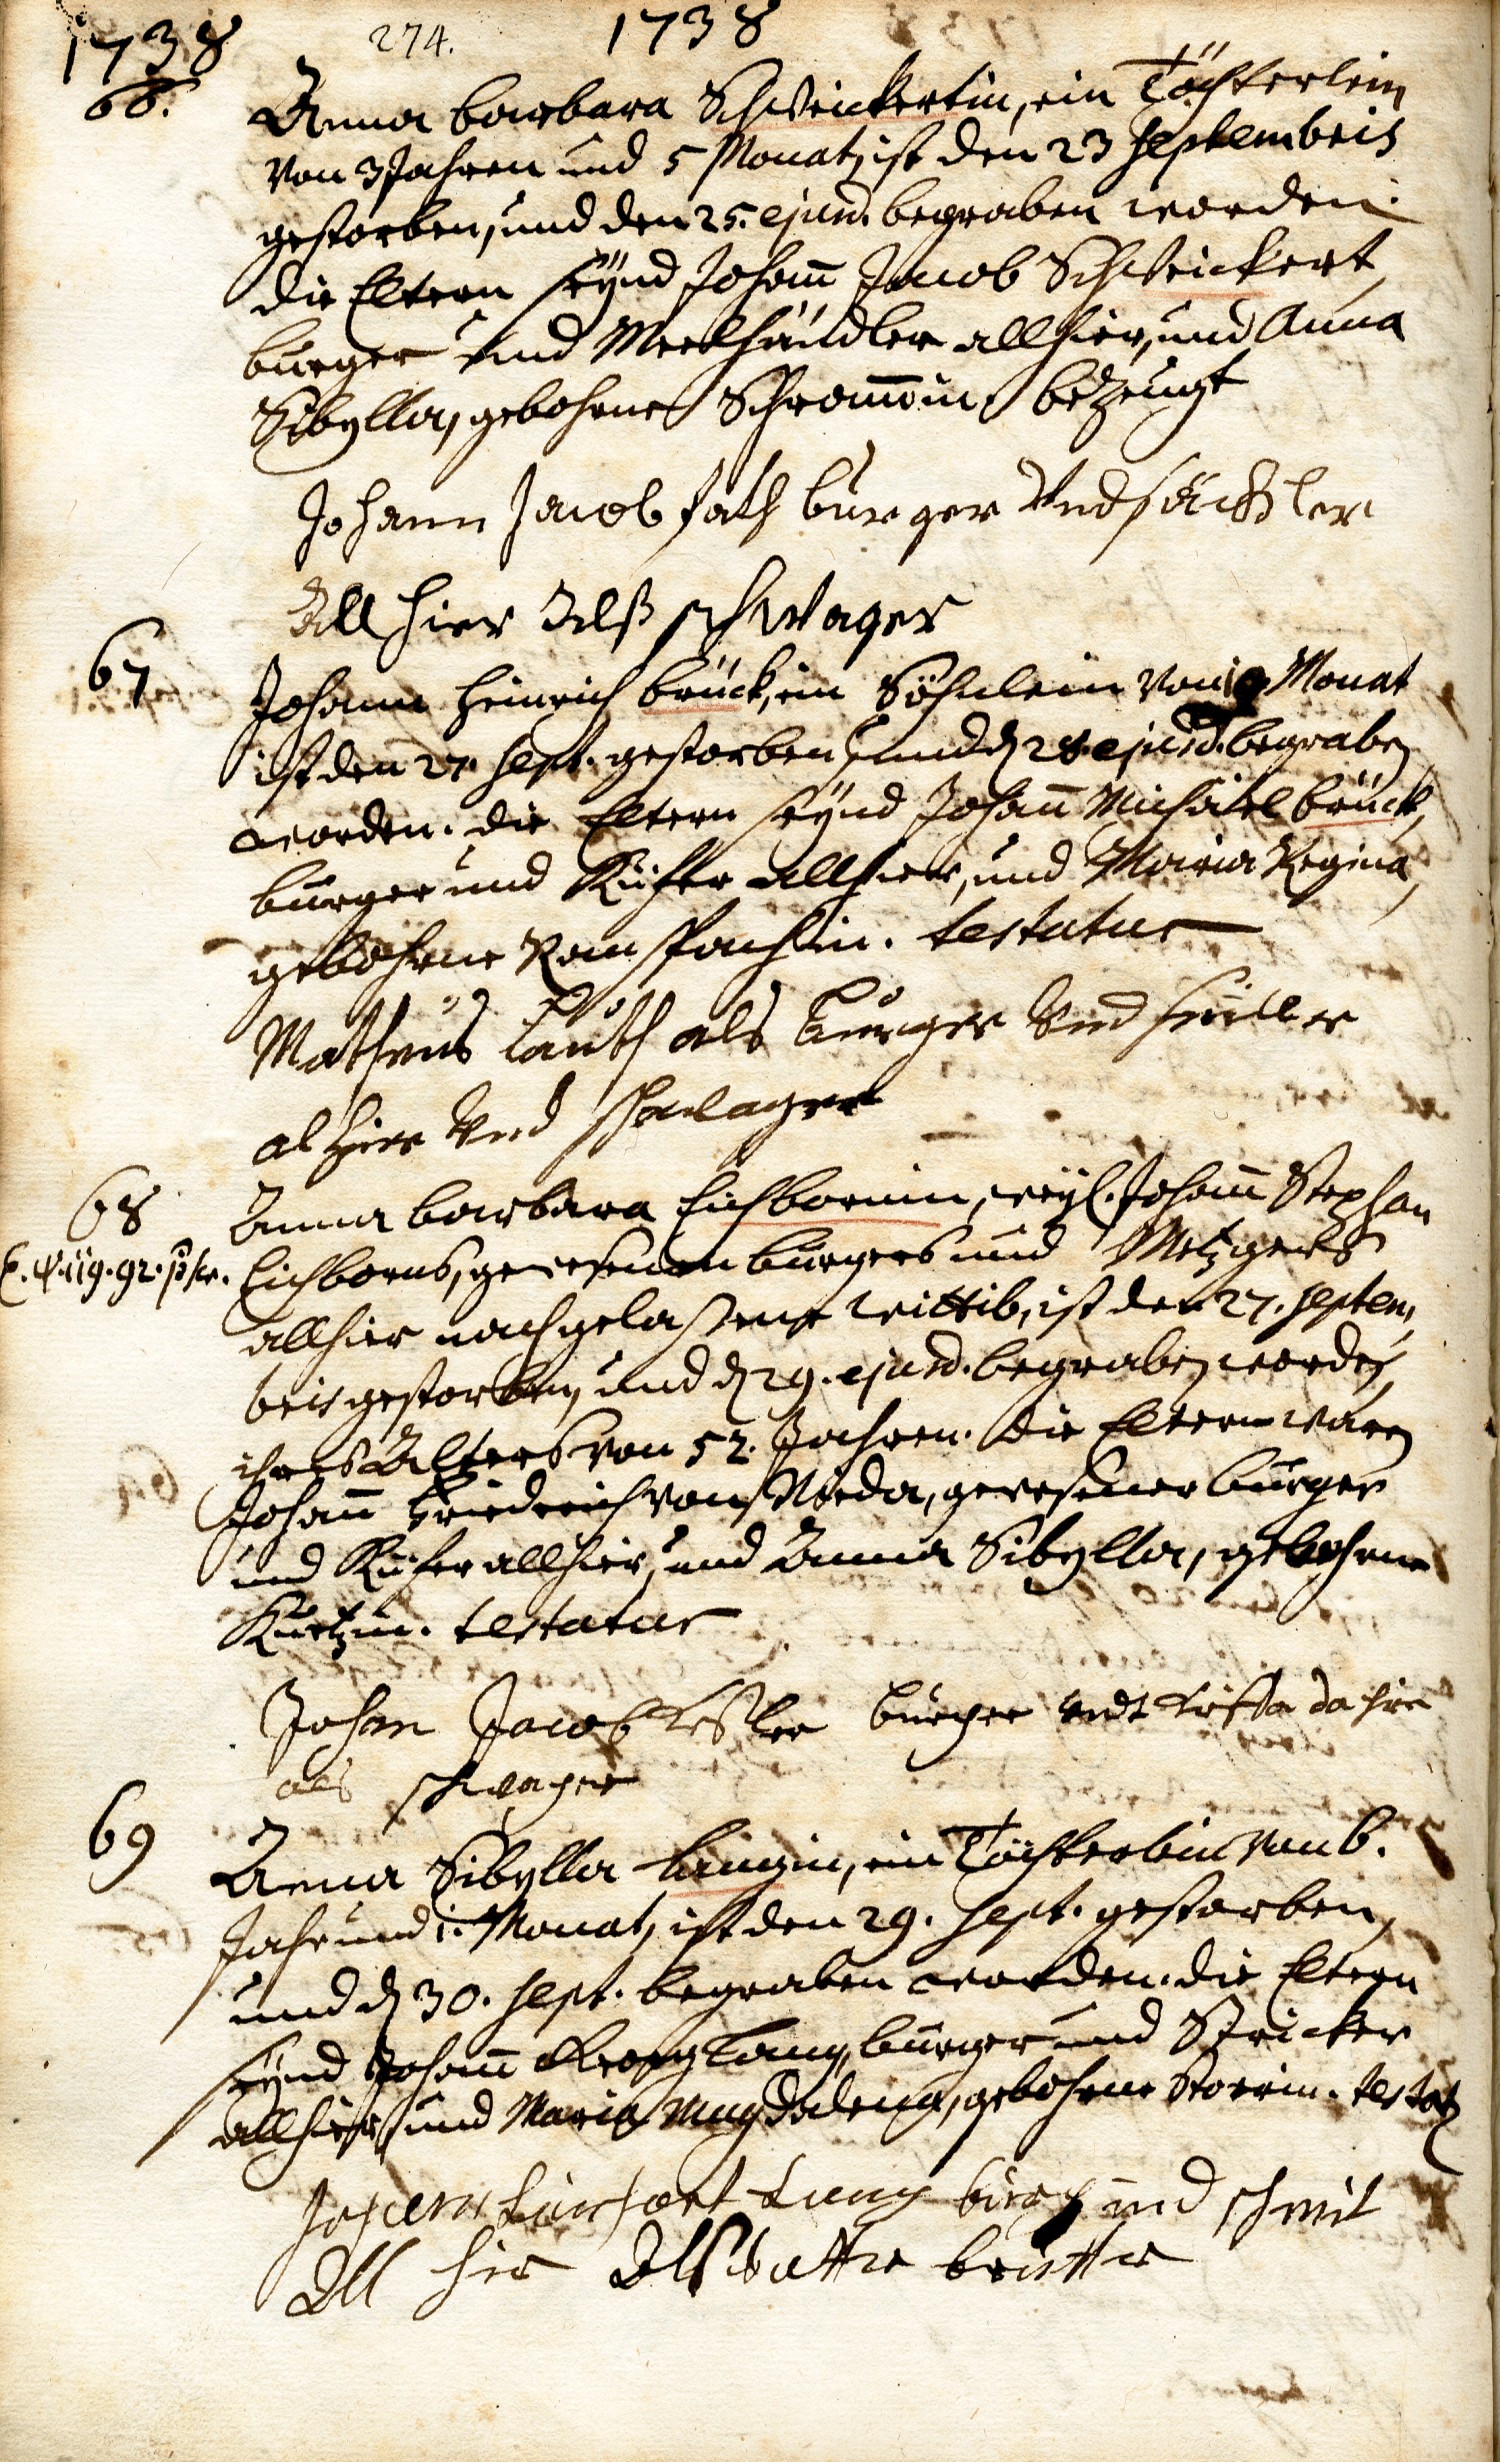 1738 274. 1738
66.
Anna barbara Schweickertin, ein Töchterlein
von 3 Jahren und 5 Monat, ist den 23 Septembris
gestorben, und den 25. ejusd. begraben worden.
die Eltern seynd Johañ Jacob Schweickert,
burger und Meelhändler allhier, und Anna
Sibylla, gebohrne Schrommin, bezeugt
Johann Jacob fath burger Vnd säckler
All hier Alß schwager
67
Johann Heinrich brück, ein Söhnlein von Monat
ist den 27. Sept. gestorben, und d. 28. ejusd. begraben
worden. die Eltern seynd Johañ Michäel brück,
burger und Kiefer allhier, und Maria Regina,
gebohrne Ramspachin. testatur
Matheus Lauth als burger Vnd
al hier Vnd schwager
68
Anna barbara Eichbornin, weyl. Johañ Stephan
Eichborns, gewesenen burgers und Metzgers
allhier nachgelaßene Wittib, ist den 27. Septem,
bris gestorben, und d. 29. ejusd. begraben worden,
ihres Alters von 52. Jahren. die Eltern waren
Johañ Friederich von Nieda, gewesener burger
und Kiefer allhier, und Anna Sibylla, gebohrne
Kurtzin. testatur
Johan Jacob Keßler burger undt dahier
als schwager
69
Anna Sibylla Langin, ein Töchterlein von 6.
Jahr und 1. Monat, ist den 29. Sept. gestorben,
und d. 30. Sept. begraben worden. die Eltern
seynd Johañ Georg Lang, burger und Stricker
allhier, und Maria Magdalena, gebohrne Storrin. testat.
Lang burger und schmit
All hir Alß vatter brutter